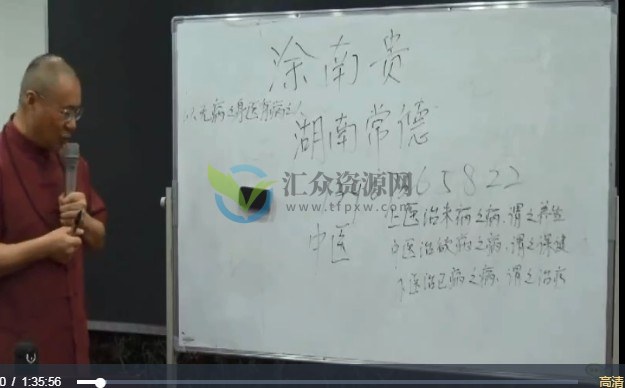 涂南贵
以无病之身医有病之人
湖南常德
汇众资源网
www.tfpxw.com
65822
中医
上医治未病之病,谓之养生
中医治欲病之病,谓之保健
下医治已病之病,谓之治疗
0 / 1:35:56
高清